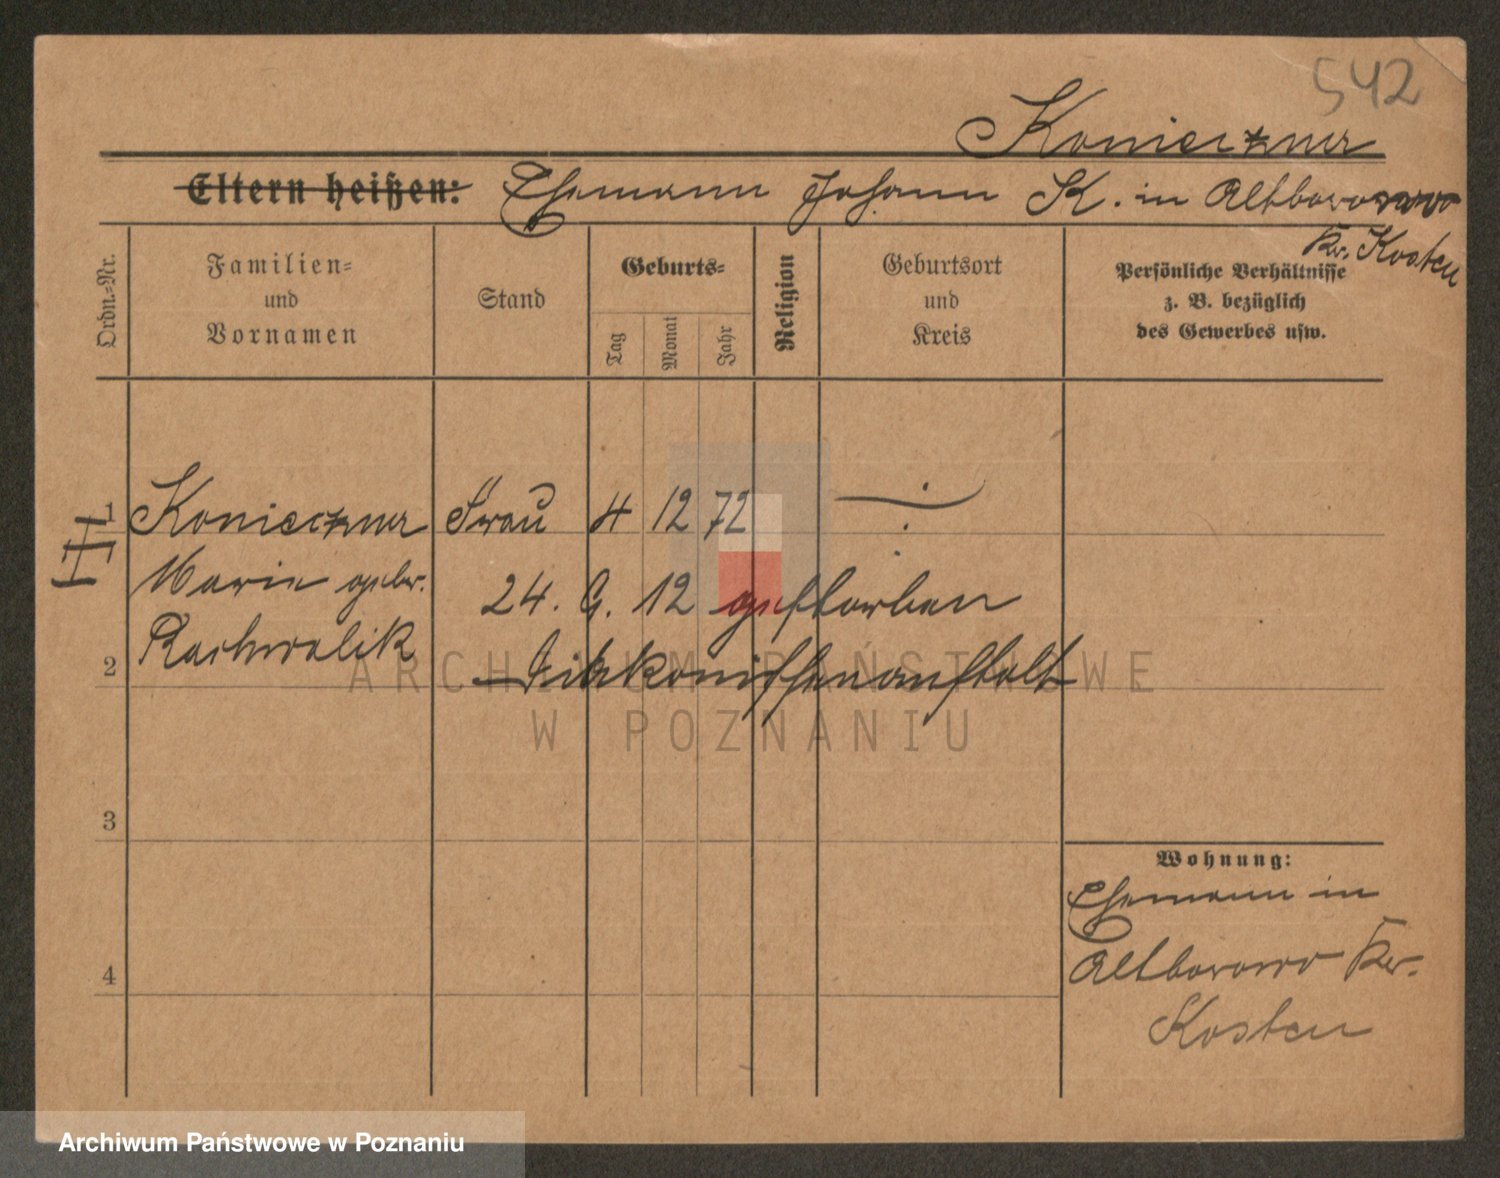 542
Konieczner
Eltern heißen: Ehemann Johann K. in Altborowo
Kr. Kosten
Ordn.-Nr.
Familien-
und
Vornamen
Stand
Geburts-
Tag
Monat
Jahr
Religion
Geburtsort
und
Kreis
Persönliche Verhältnisse
z. B. bezüglich
des Gewerbes usw.
1 Konieczner Frau 4 12 72
Marie gebr. 24. 6. 12 gestorben
2 Ratwalik Diakonissenanstalt
ARCHIWUM PAŃSTWOWE
W POZNANIU
3
4
Wohnung:
Ehemann in
Altborowo Kr.
Kosten
Archiwum Państwowe w Poznaniu